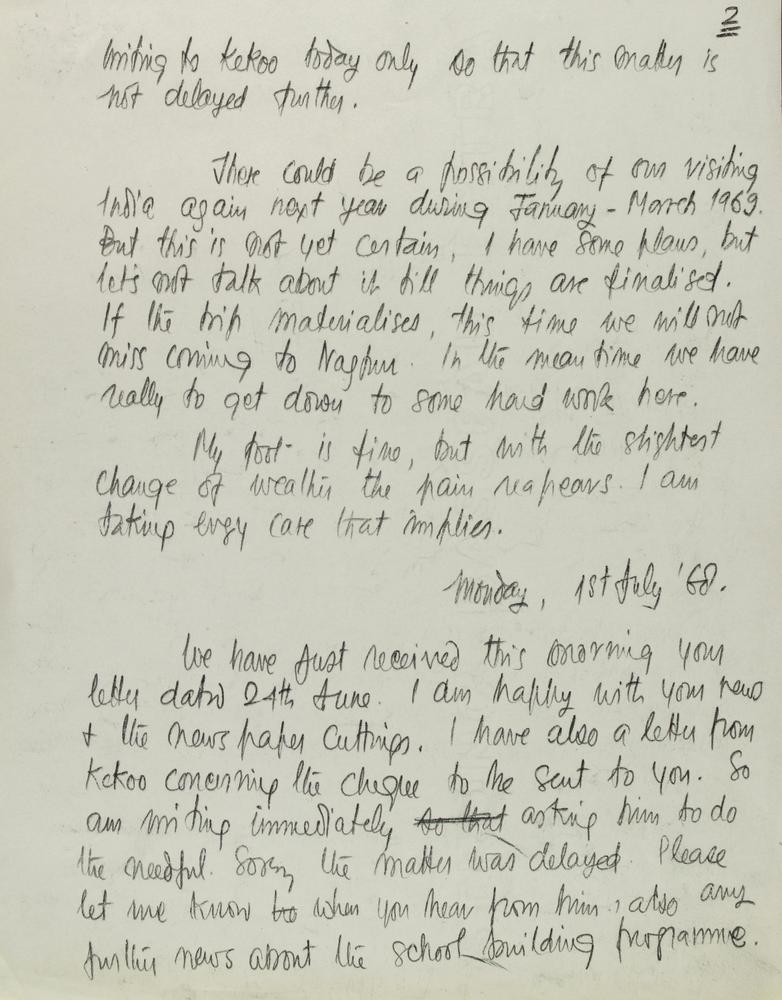 2
writing to Kekoo today only so that this matter is
not delayed further.
There could be a possibility of our visiting
India again next year during January - March 1969.
But this is not yet certain, I have some plans, but
let's not talk about it till things are finalised.
If the trip materialises, this time we will not
miss coming to Nagpur. In the meantime we have
really to get down to some hard work here.
My foot is fine, but with the slightest
change of weather the pain reapears. I am
taking evry care that implies.
Monday, 1st July '68.
We have just received this morning your
letter dated 24th June. I am happy with your news
+ the news paper cuttings. I have also a letter from
Kekoo concerning the cheque to be sent to you. So
am writing immediately so that asking him to do
the needful. Sorry the matter was delayed. Please
let me know when you hear from him, also any
further news about the school building programme.